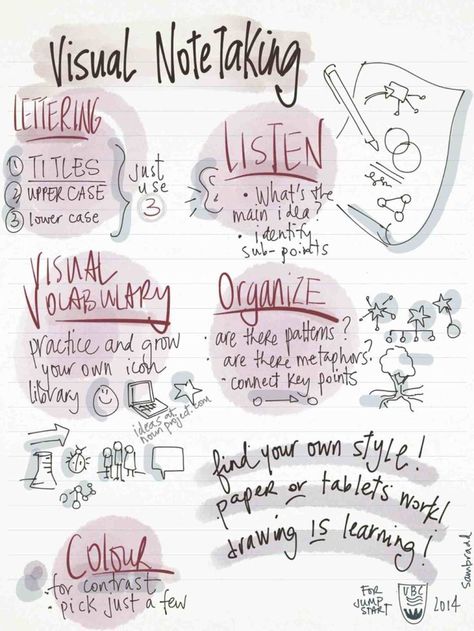 Visual NoteTaking
LETTERING
① TITLES
② UPPERCASE
③ lower case
just
use
③
LISTEN
• What's the
main idea?
• identify
sub-points
VISUAL
VOCABULARY
practice and grow
your own icon
library
ideas at
nounproject.com
ORGANIZE
• are there patterns?
• are there metaphors?
• connect key points
find your own style!
paper or tablets work!
drawing IS learning!
COLOUR
• for contrast
• pick just a few
FOR
JUMP
START
UBC
2014
sambradd